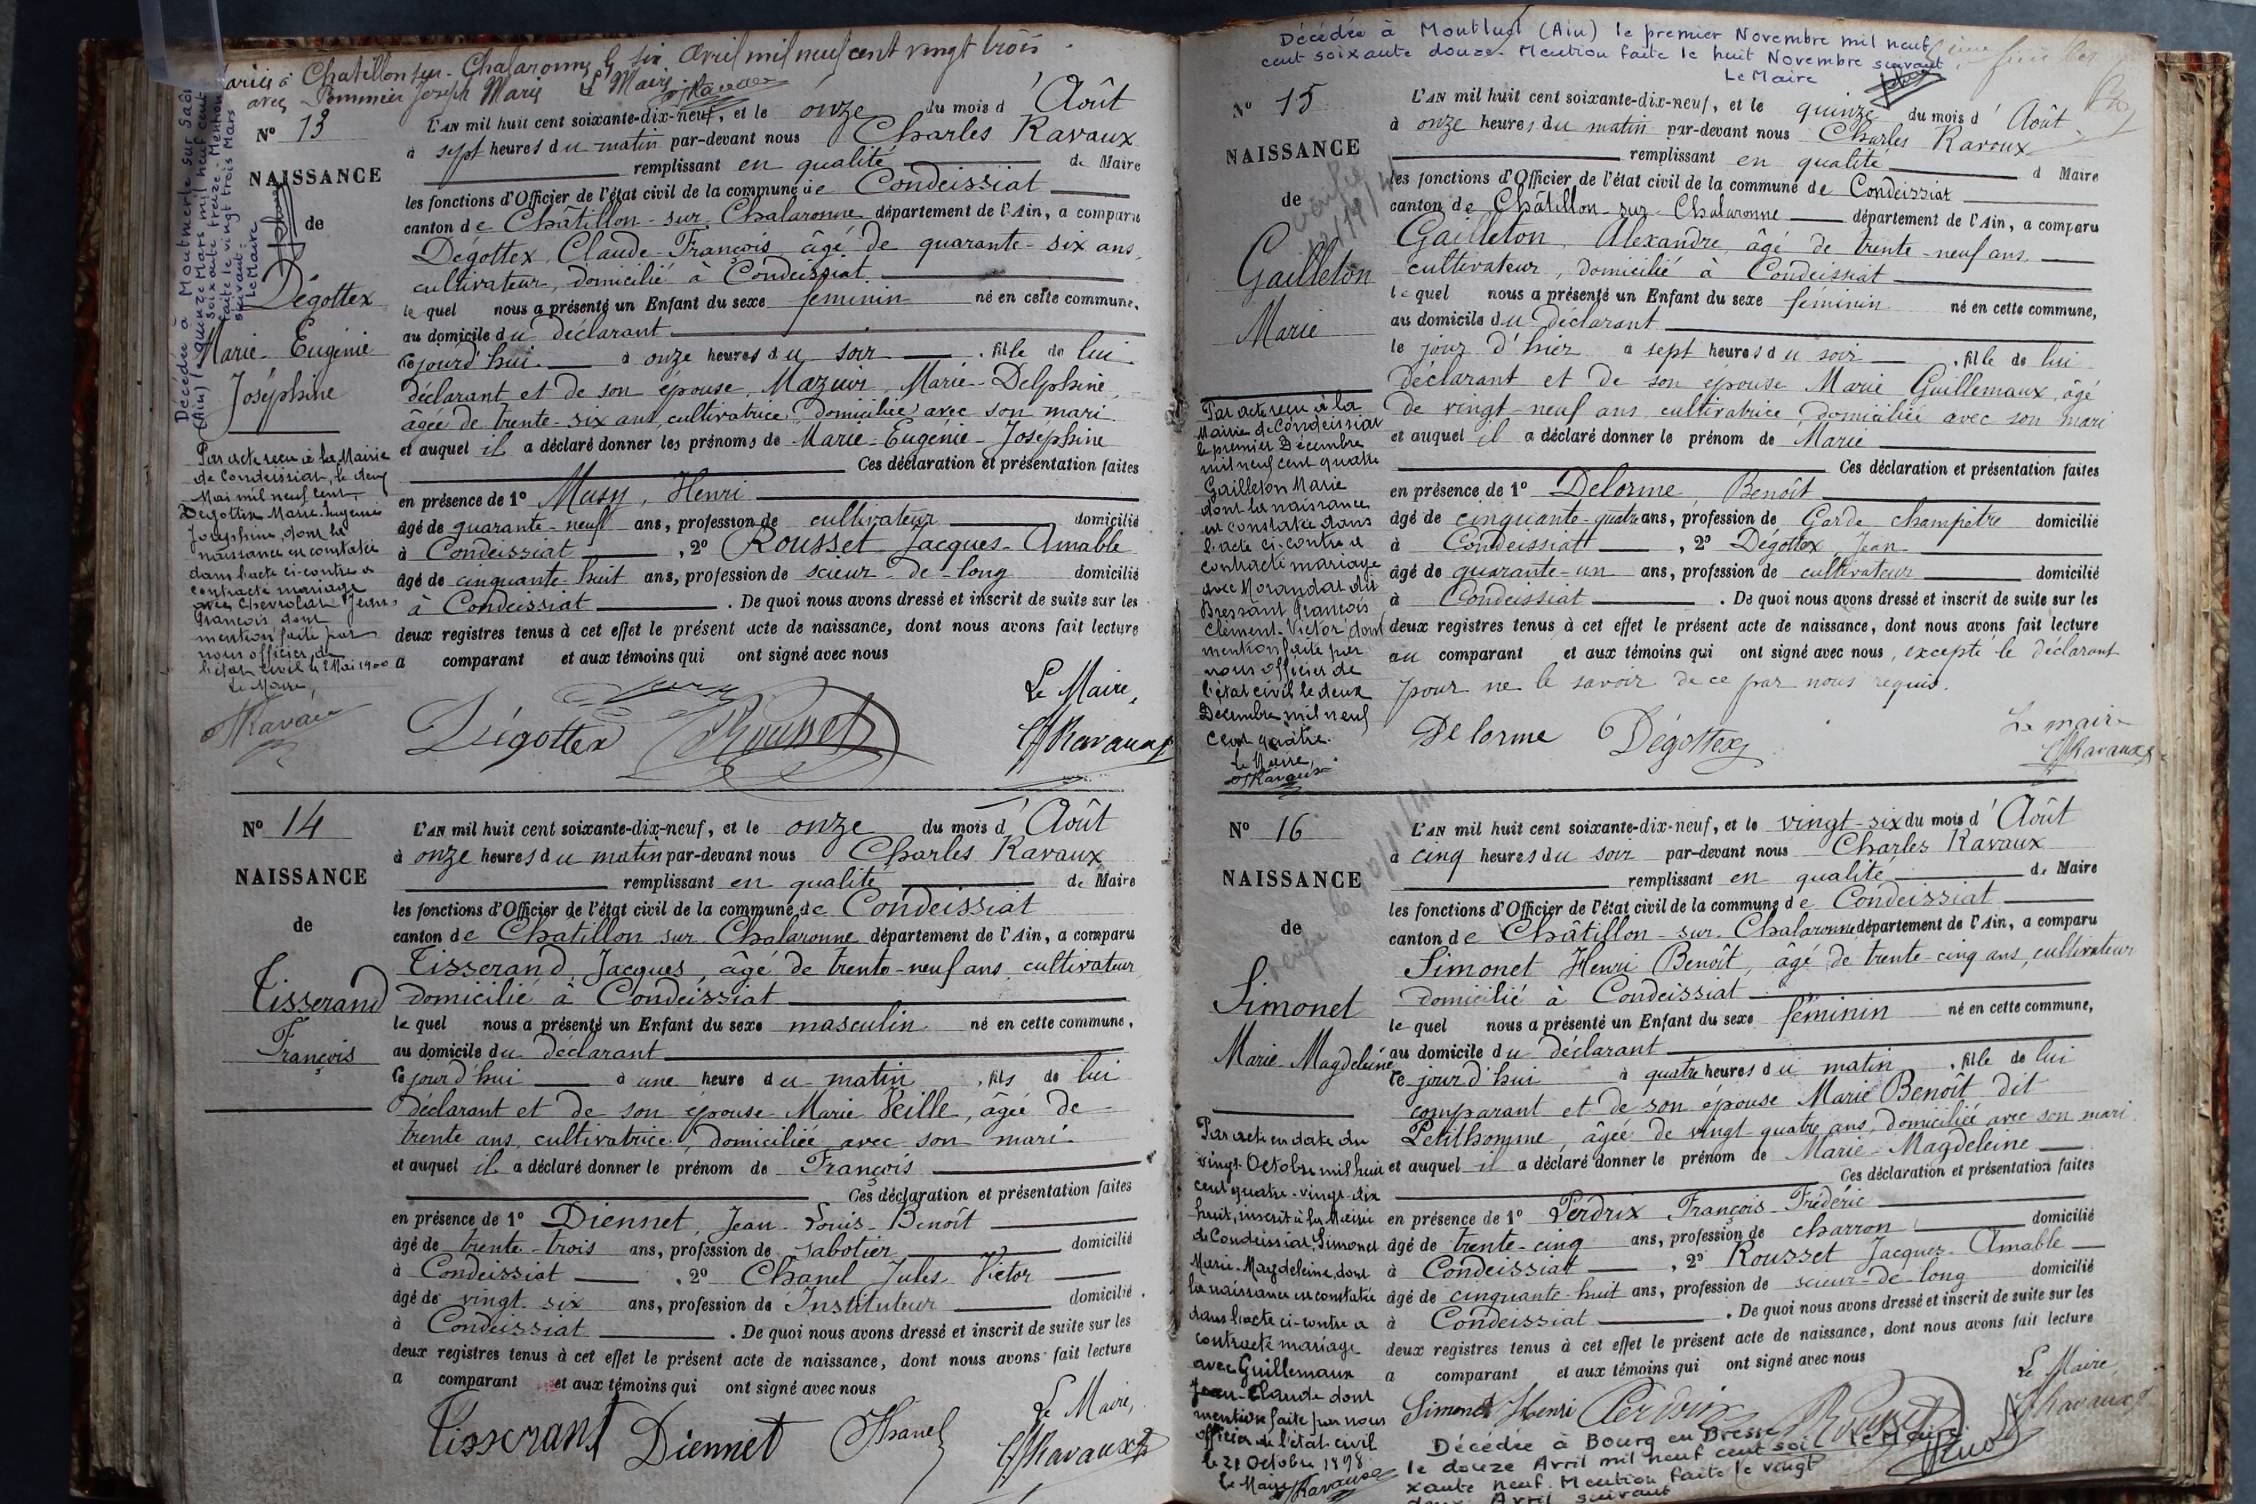 Mariée à Chatillon-sur-Chalaronne le six avril mil neuf cent vingt trois
avec Pommier Joseph Marie Le Maire
Ravaux
Décédée à Montmerle sur Saône
(Ain) le quinze Mars mil neuf cent
soixante treize. Mention
faite le vingt trois Mars
suivant.
Le Maire
N° 13
NAISSANCE
de
Dégottex
Marie-Eugénie
Joséphine
Par acte reçu à la Mairie
de Condeissiat, le deux
Mai mil neuf cent
Dégottex Marie Eugénie
Joséphine, dont la
naissance est constatée
dans l'acte ci-contre a
contracté mariage
avec Chevrolat Jean
François dont
mention faite par
nous officier de
l'état civil le 2 Mai 1900
Le Maire,
Ravaux
L'AN mil huit cent soixante-dix-neuf, et le onze du mois d'Août
à sept heures du matin par-devant nous Charles Ravaux
remplissant en qualité de Maire
les fonctions d'Officier de l'état civil de la commune de Condeissiat
canton de Châtillon-sur-Chalaronne département de l'Ain, a comparu
Dégottex, Claude-François âgé de quarante-six ans,
cultivateur, domicilié à Condeissiat
le quel nous a présenté un Enfant du sexe féminin né en cette commune,
au domicile du déclarant
ce jourd'hui à onze heures du soir, fille de lui
déclarant et de son épouse Mazuir, Marie-Delphine,
âgée de trente-six ans, cultivatrice, domiciliée avec son mari
et auquel il a déclaré donner les prénoms de Marie-Eugénie-Joséphine
Ces déclaration et présentation faites
en présence de 1° Musy, Henri
âgé de quarante-neuf ans, profession de cultivateur domicilié
à Condeissiat, 2° Rousset Jacques-Amable
âgé de cinquante-huit ans, profession de scieur-de-long domicilié
à Condeissiat. De quoi nous avons dressé et inscrit de suite sur les
deux registres tenus à cet effet le présent acte de naissance, dont nous avons fait lecture
a comparant et aux témoins qui ont signé avec nous
Le Maire,
Dégottex Rousset Ch Ravaux
N° 14
NAISSANCE
de
Tisserand
François
L'AN mil huit cent soixante-dix-neuf, et le onze du mois d'Août
à onze heures du matin par-devant nous Charles Ravaux
remplissant en qualité de Maire
les fonctions d'Officier de l'état civil de la commune de Condeissiat
canton de Châtillon sur Chalaronne département de l'Ain, a comparu
Tisserand, Jacques, âgé de trente-neuf ans, cultivateur
domicilié à Condeissiat
le quel nous a présenté un Enfant du sexe masculin né en cette commune,
au domicile du déclarant
ce jourd'hui à une heure du matin, fils de lui
déclarant et de son épouse Marie Veille, âgée de
trente ans, cultivatrice, domiciliée avec son mari
et auquel il a déclaré donner le prénom de François
Ces déclaration et présentation faites
en présence de 1° Diennet Jean-Louis-Benoît
âgé de trente-trois ans, profession de sabotier domicilié
à Condeissiat, 2° Chanel Jules Victor
âgé de vingt-six ans, profession de Instituteur domicilié
à Condeissiat. De quoi nous avons dressé et inscrit de suite sur les
deux registres tenus à cet effet le présent acte de naissance, dont nous avons fait lecture
a comparant et aux témoins qui ont signé avec nous
Le Maire,
Tisserant Diennet Chanel Ch Ravaux
Décédée à Montluel (Ain) le premier Novembre mil neuf
cent soixante douze. Mention faite le huit Novembre suivant
Le Maire
N° 15
NAISSANCE
de
Gailleton
Marie
Par acte reçu à la
Mairie de Condeissiat
le premier Décembre
mil neuf cent quatre
Gailleton Marie
dont la naissance
est constatée dans
l'acte ci-contre a
contracté mariage
avec Morandat dit
Bressant François
Clément-Victor dont
mention faite par
nous officier de
l'état civil le deux
Décembre mil neuf
cent quatre.
Le Maire,
Ravaux
L'AN mil huit cent soixante-dix-neuf, et le quinze du mois d'Août
à onze heures du matin par-devant nous Charles Ravoux
remplissant en qualité d Maire
les fonctions d'Officier de l'état civil de la commune de Condeissiat
canton de Châtillon-sur-Chalaronne département de l'Ain, a comparu
Gailleton, Alexandre, âgé de trente-neuf ans
cultivateur, domicilié à Condeissiat
le quel nous a présenté un Enfant du sexe féminin né en cette commune,
au domicile du déclarant
le jour d'hier à sept heures du soir, fille de lui
déclarant et de son épouse Marie Guillemaux, âgé
de vingt-neuf ans cultivatrice, domiciliée avec son mari
et auquel il a déclaré donner le prénom de Marie
Ces déclaration et présentation faites
en présence de 1° Delorme, Benoît
âgé de cinquante-quatre ans, profession de Garde champêtre domicilié
à Condeissiat, 2° Dégottex Jean
âgé de quarante-un ans, profession de cultivateur domicilié
à Condeissiat. De quoi nous avons dressé et inscrit de suite sur les
deux registres tenus à cet effet le présent acte de naissance, dont nous avons fait lecture
au comparant et aux témoins qui ont signé avec nous, excepté le déclarant
pour ne le savoir de ce par nous requis.
Le maire
Delorme Dégottex Ch Ravaux
N° 16
NAISSANCE
de
Simonet
Marie-Magdeleine
Par acte en date du
vingt Octobre mil huit
cent quatre-vingt-dix
huit, inscrit à la Mairie
de Condeissiat, Simonet
Marie-Magdeleine, dont
la naissance est constatée
dans l'acte ci-contre a
contracté mariage
avec Guillemaux
Jean-Claude dont
mention faite par nous
officier de l'état civil
le 21 Octobre 1898.
Le Maire Ravaux
L'AN mil huit cent soixante-dix-neuf, et le vingt-six du mois d'Août
à cinq heures du soir par-devant nous Charles Ravaux
remplissant en qualité de Maire
les fonctions d'Officier de l'état civil de la commune de Condeissiat
canton de Châtillon-sur-Chalaronne département de l'Ain, a comparu
Simonet Henri Benoît, âgé de trente-cinq ans, cultivateur
domicilié à Condeissiat
le quel nous a présenté un Enfant du sexe féminin né en cette commune,
au domicile du déclarant
ce jourd'hui à quatre heures du matin, fille de lui
comparant et de son épouse Marie Benoît dit
Petithomme, âgée de vingt quatre ans, domiciliée avec son mari
et auquel il a déclaré donner le prénom de Marie-Magdeleine
Ces déclaration et présentation faites
en présence de 1° Perdrix François-Frédéric
âgé de trente-cinq ans, profession de charron domicilié
à Condeissiat, 2° Rousset Jacques-Amable
âgé de cinquante-huit ans, profession de scieur-de-long domicilié
à Condeissiat. De quoi nous avons dressé et inscrit de suite sur les
deux registres tenus à cet effet le présent acte de naissance, dont nous avons fait lecture
a comparant et aux témoins qui ont signé avec nous
Le Maire
Simonet Henri Perdrix Rousset Ravaux
Décédée à Bourg en Bresse
le douze Avril mil neuf cent soi Le Maire
xante neuf. Mention faite le vingt
deux Avril suivant